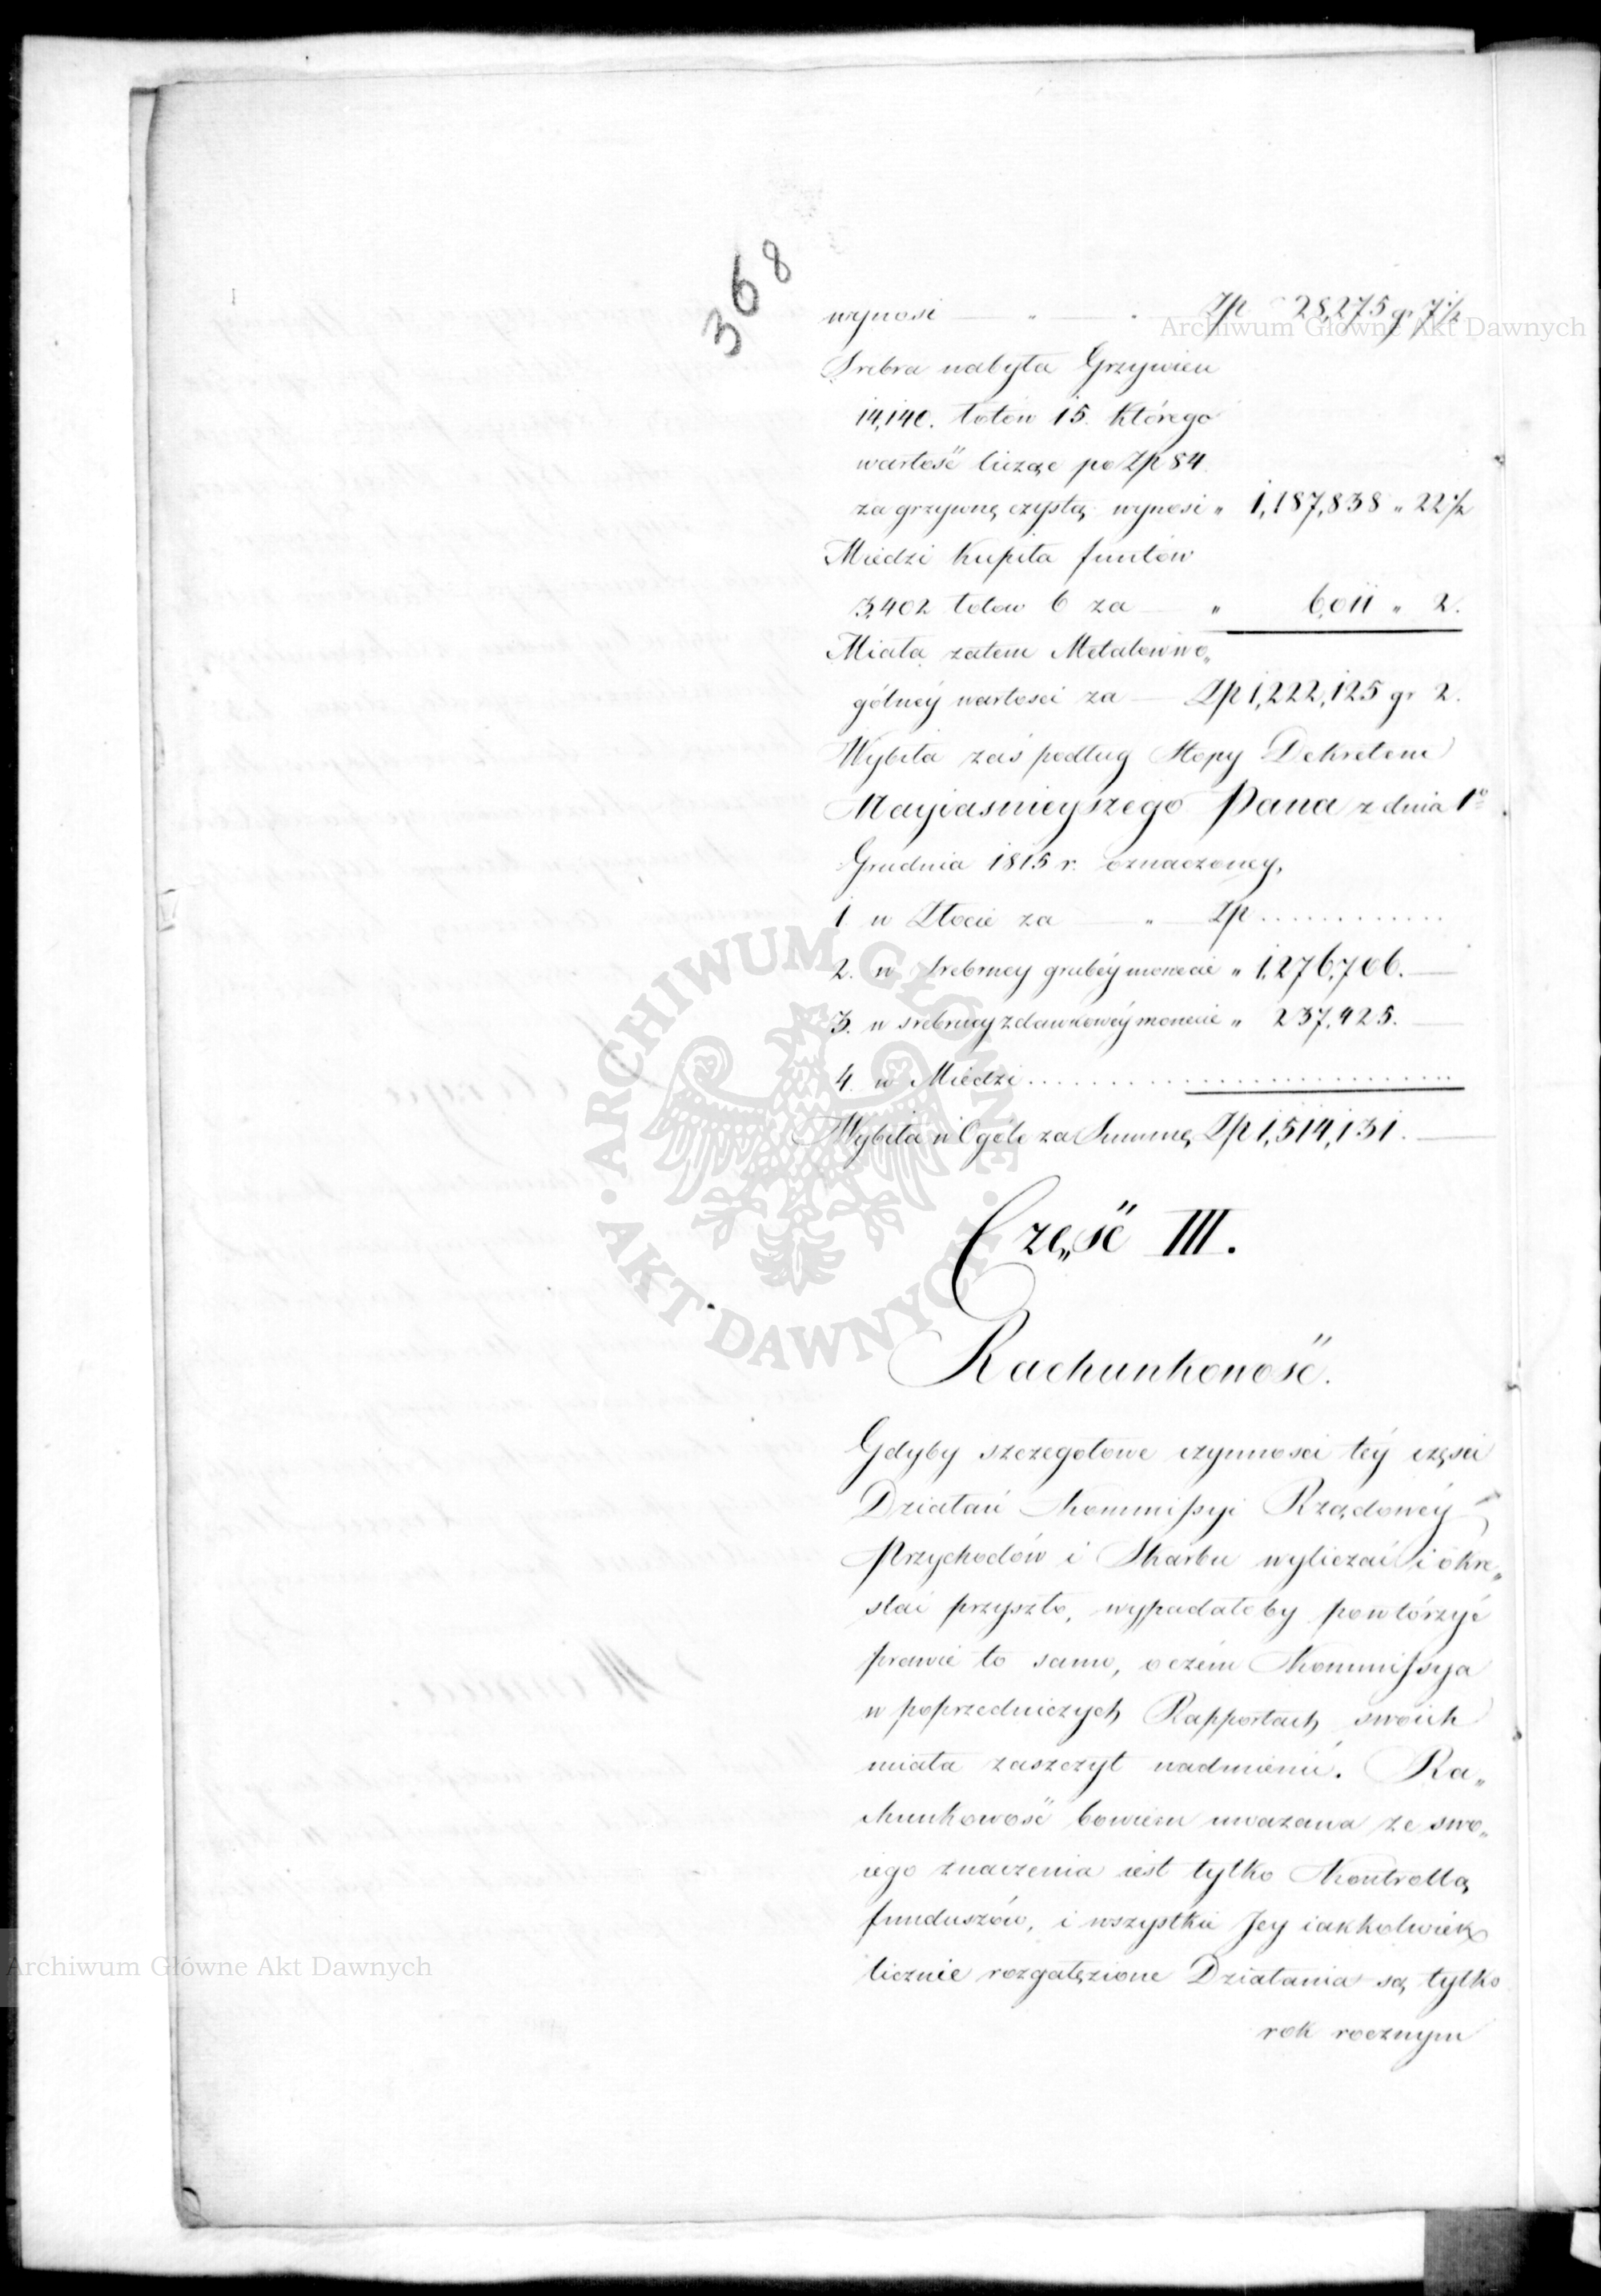 368
wynosi — „ — „ — Zp 28,275 gr 7½
Srebra nabyła Grzywien
14,140. łotów 15. którego
wartość licząc po Zp 84.
za grzywnę czystą wynosi „ 1,187,838 „ 22½
Miedzi kupiła funtów
3,402 łotow 6 za — „ 6,011 „ 2.
Miała zatem Metalow w o„
gólney wartosci za — Zp 1,222,125 gr 2.
Wybiła zaś podług Stopy Dekretem
Nayiasnieyszego Pana z dnia 1º
Grudnia 1815 r. oznaczoney,
1 w Złocie za — „ — Zp . . . . . . . . . . . .
2. w Srebrney grubéy monecie „ 1,276,706. —
3. w srebrney zdawkowéy monecie „ 237,425. —
4. w Miedzi . . . . . . . . . . . . . . . . . . . . . . . .
Wybiła w Ogóle za Summę Zp 1,514,131. —
Czę„ść III.
Rachunkowość.
Gdyby szczegołowe czynnosci téy części
Działań Kommissyi Rządowéy
Przychodów i Skarbu wyliczać i okre„
slać przyszło, wypadałoby powtórzyć
prawie to samo, o czém Kommissya
w poprzedniczych Rapportach swoich
miała zaszczyt nadmienić. Ra„
chunkowość bowiem uwazana ze swo„
iego znaczenia iest tylko Kontrollą
funduszów, i wszystkie Jey iakkolwiek
licznie rozgałęzione Działania są tylko
rok rocznym
Archiwum Główne Akt Dawnych
Archiwum Główne Akt Dawnych
ARCHIWUM GŁÓWNE · AKT · DAWNYCH ·